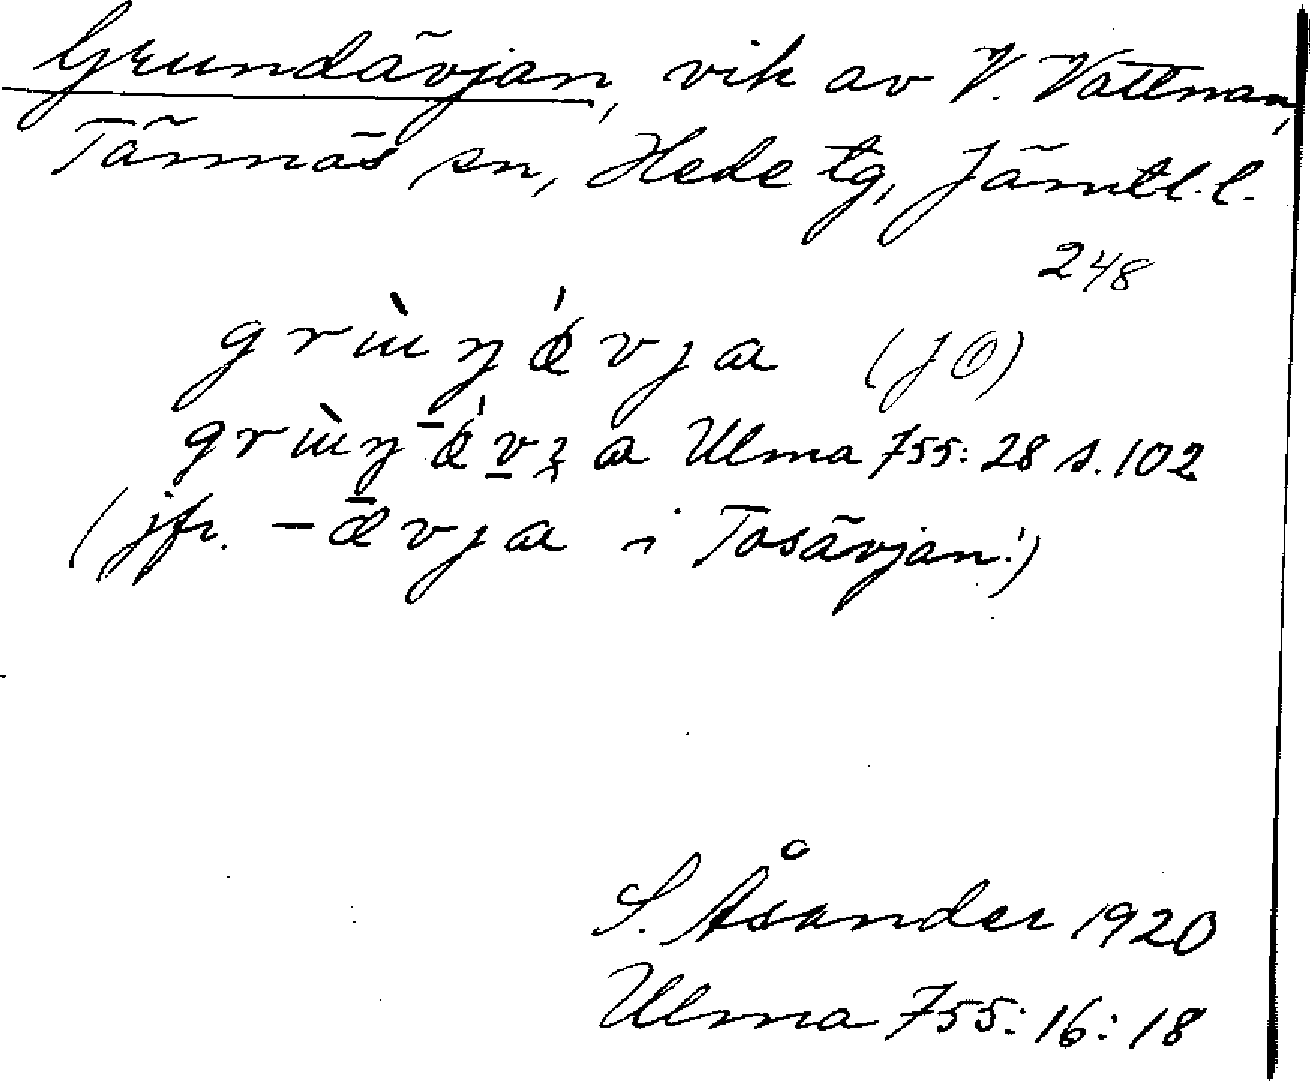 Grundävjan, vik av V. Vattnan,
Tännäs sn, Hede tg, Jämtl. l.
248
(JO)
Ulma 755: 28 s. 102
(jfr. -ævja i Tosävjan!)
S. Åsander 1920
Ulma 755: 16: 18